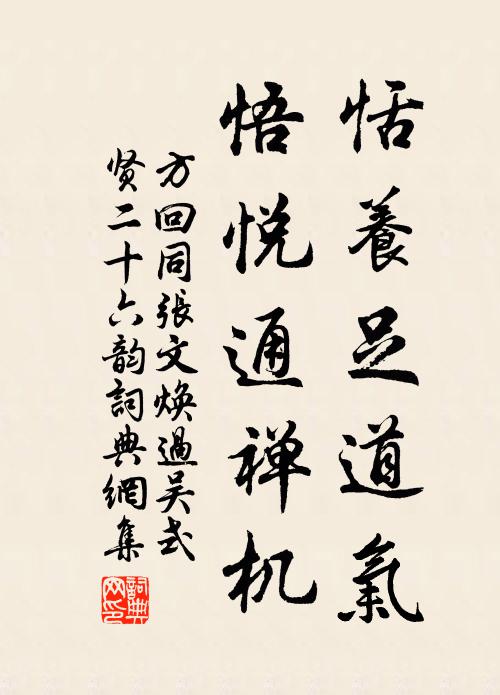 恬養足道氣
悟悦通禅机
方回同張文焕過吴式
贤二十六韵詞典網集
詞典
网印